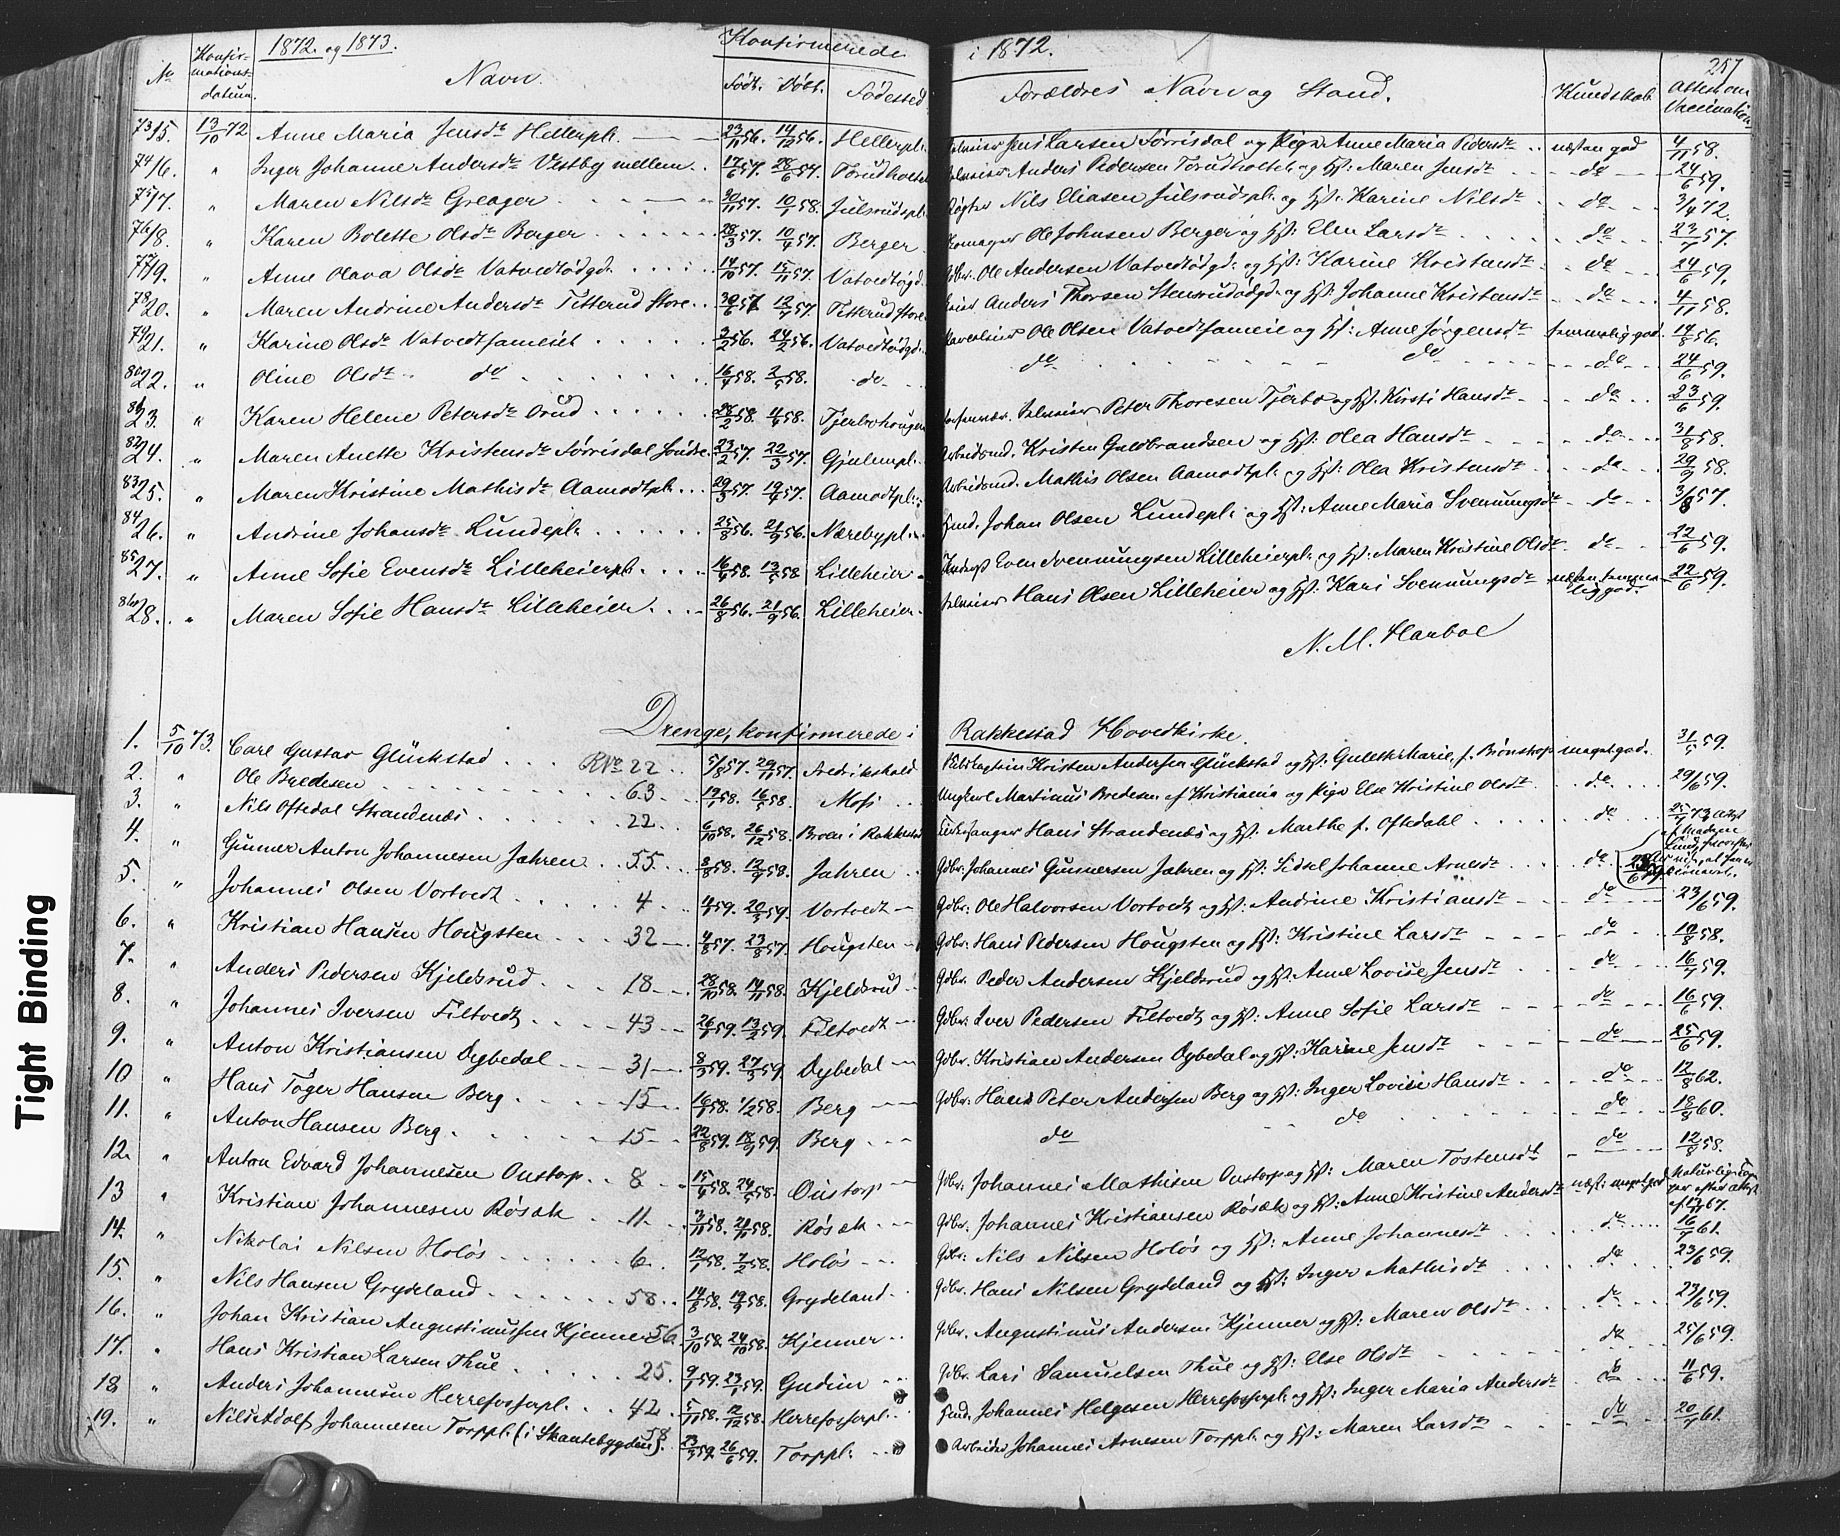 1872. og 1873. Konfirmerede i 1872. 257
No Konfirmationsdatum. Navn. Født. Døbt. Fødested. Forældres Navn og Stand. Kundskab. Attest om Vaccination.
73/15. 13/10 72 Anne Maria Jensdr Hellerpl. 23/11 56. 14/12 56. Hellerpl. Jens Larsen Sørrisdal og Pige Anne Maria Pedersdr næsten god 4/11 58.
74/16. " Inger Johanne Andersdr Vestby mellem. 17/6 57. 28/6 57. Torudholtet Anders Pedersen Torudholtet og Hst: Maren Jensdr do 24/6 59.
75/17. " Maren Nilsdr Greager 20/11 57. 10/1 58. Julsrudspl. Nils Eliasen Julsrudspl. og Hst: Karine Nilsdr do 3/4 72.
76/18. " Karen Bolette Olsdr Berger 28/3 57. 10/4 57. Berger Ole Johnsen Berger og Hst: Elen Larsdr do 23/7 57.
77/19. " Anne Olava Olsdr Vatvedtødgd. 14/10 57. 15/11 57. Vatvedtødgd. Gdbr. Ole Andersen Vatvedtødgd. og Hst: Karine Kristensdr do 24/6 59.
78/20. " Maren Andrine Andersdr Titterud store 30/6 57 12/7 57. Titterud store. Anders Thorsen Stensrudødgd. og Hst: Johanne Kristensdr do 4/11 58.
79/21. " Karine Olsdr Vatvedtsameiet 3/2 56. 24/2 56. Vatvedtødgd. Ole Olsen Vatvedtsameie og Hst: Anne Jørgensdr temmelig god. 14/8 56.
80/22. " Oline Olsdr do 16/4 58. 2/5 58. do do do do 24/6 59.
81/23. " Karen Helene Petersdr Orud 28/2 58. 4/4 58. Tjerbohougen Selveier Peter Thoresen Tjerbo og Hst. Kirsti Hansdr do 23/6 59.
82/24. " Maren Anette Kristensdr Sørrisdal søndre 23/2 57. 22/3 57. Gjulempl. Arbeidsmd. Kristen Guldbrandsen og Hst: Olea Hansdr do 31/8 58.
83/25. " Maren Kristine Mathisdr Aamodtpl. 29/3 57. 19/4 57. Aamodtpl. Arbeidsmd. Mathis Olsen Aamodtpl. og Hst: Olea Kristensdr do 29/9 58.
84/26. " Andrine Johansdr Lundepl. 25/8 56. 21/9 56. Nærebypl. Hmd. Johan Olsen Lundepl. og Hst: Anne Maria Svenningsdr do 3/8 57.
85/27. " Anne Sofie Evensdr Lilleheierpl. 16/4 58. 13/5 58. Lilleheier Even Svenningsen Lilleheierpl. og Hst: Maren Kristine Olsdr do 22/6 59.
86/28. " Maren Sofie Hansdr Lilleheier. 26/8 56. 21/9 56. Lilleheier Selveier Hans Olsen Lilleheier og Hst: Kari Svenningsdr næsten temmelig god. 22/6 59.
N. M. Harboe
Drenge, konfirmerede i Rakkestad Hovedkirke.
1. 5/10 73. Carl Gustav Glückstad RNo 22 5/8 57. 29/11 57. Fredrikshald Kristen Andersen Glückstad og Hst: Marie, f. Brønstrop meget god. 31/5 59.
2. " Ole Bredesen 63 19/1 58. 16/5 58. Moss Ungkarl Martinus Bredesen af Kristiania og Pige Else Kristine Olsdr do 29/6 59.
3. " Nils Oftedal Strandenæs 22 6/10 58. 26/12 58. Broen i Rakkestad Kirkesanger Hans Strandenæs og Hst. Marthe f. Oftedal do 25/9 73 Attest af Madame
4. " Gunner Anton Johannesen Jahren 55 8/8 58. 12/9 58. Jahren Gdbr. Johannes Gunnersen Jahren og Hst: Sidsel Johanne Arnesdr do 23/6 59.
5. " Johannes Olsen Vortvedt 4 4/2 59. 20/3 59. Vortvedt Gdbr: Ole Halvorsen Vortvedt og Hst: Andrine Kristiansdr do 23/6 59.
6. " Kristian Hansen Hougsten 32 4/8 57. 23/8 57. Hougsten Gdbr: Hans Pedersen Hougsten og Hst: Kristine Larsdr do 10/8 58.
7. " Anders Pedersen Kjeldsrud 18 28/10 58. 14/11 58. Kjeldsrud Gdbr. Peder Andersen Kjeldsrud og Hst: Anne Lovise Jensdr do 16/7 59.
8. " Johannes Iversen Filtvedt 43 26/1 59. 13/2 59. Filtvedt Gdbr: Iver Pedersen Filtvedt og Hst: Anne Sofie Larsdr do 16/6 59.
9. " Anton Kristiansen Dybedal 31 8/3 59. 27/3 59. Dybedal Gdbr. Kristian Andersen Dybedal og Hst: Karine Jensdr do 25/6 59.
10 " Hans Tøger Hansen Berg 15 16/1 58. 1/2 58. Berg Gdbr: Hans Peter Andersen Berg og Hst: Inger Lovise Hansdr do 12/8 62.
11. " Anton Hansen Berg. 15 22/8 59. 18/9 59. Berg do do do 18/9 60.
12. " Anton Edvard Johannesen Oustorp 8 15/4 58. 24/5 58. Oustorp Gdbr: Johannes Mathisen Oustorp og Hst: Maren Tostensdr do 12/8 58.
13 " Kristian Johannesen Røsæk 11 3/10 58. 21/11 58. Røsæk Gdbr. Johannes Kristiansen Røsæk og Hst: Anne Kristine Andersdr næst. meget god Naturlige Kopper efter Attest
14. " Nikolai Nilsen Holøs 6 12/1 58. 7/2 58. Holøs Gdbr: Nils Nilsen Holøs og Hst: Anne Johannesdr do 16/9 61.
15. " Nils Hansen Grydeland 58 14/8 58. 19/9 58. Grydeland Gdbr. Hans Nilsen Grydeland og Hst: Inger Mathisdr do 23/6 59.
16. " Johan Kristian Augustinussen Kjenner 56 3/10 58. 24/10 58. Kjenner Gdbr. Augustinus Andersen Kjenner og Hst: Maren Olsdr do 23/6 59.
17. " Hans Kristian Larsen Thue 25. 9/1 59. 23/1 59. Gudim Gdbr. Lars Samuelsen Thue og Hst: Else Olsdr do 25/6 59.
18 " Anders Johannesen Herrefosserpl. 42 5/11 58. 12/12 58. Herrefosserpl. Hmd. Johannes Helgesen Herrefosserpl. og Hst: Inger Maria Andersdr do 11/6 59.
19. " Nils Adolf Johannesen Torppl. (i Skautebygden). 58 23/3 59. 26/6 59. Torppl. Arbeider Johannes Arnesen Torppl. og Hst: Maren Larsdr do 20/9 61.
Tight Binding